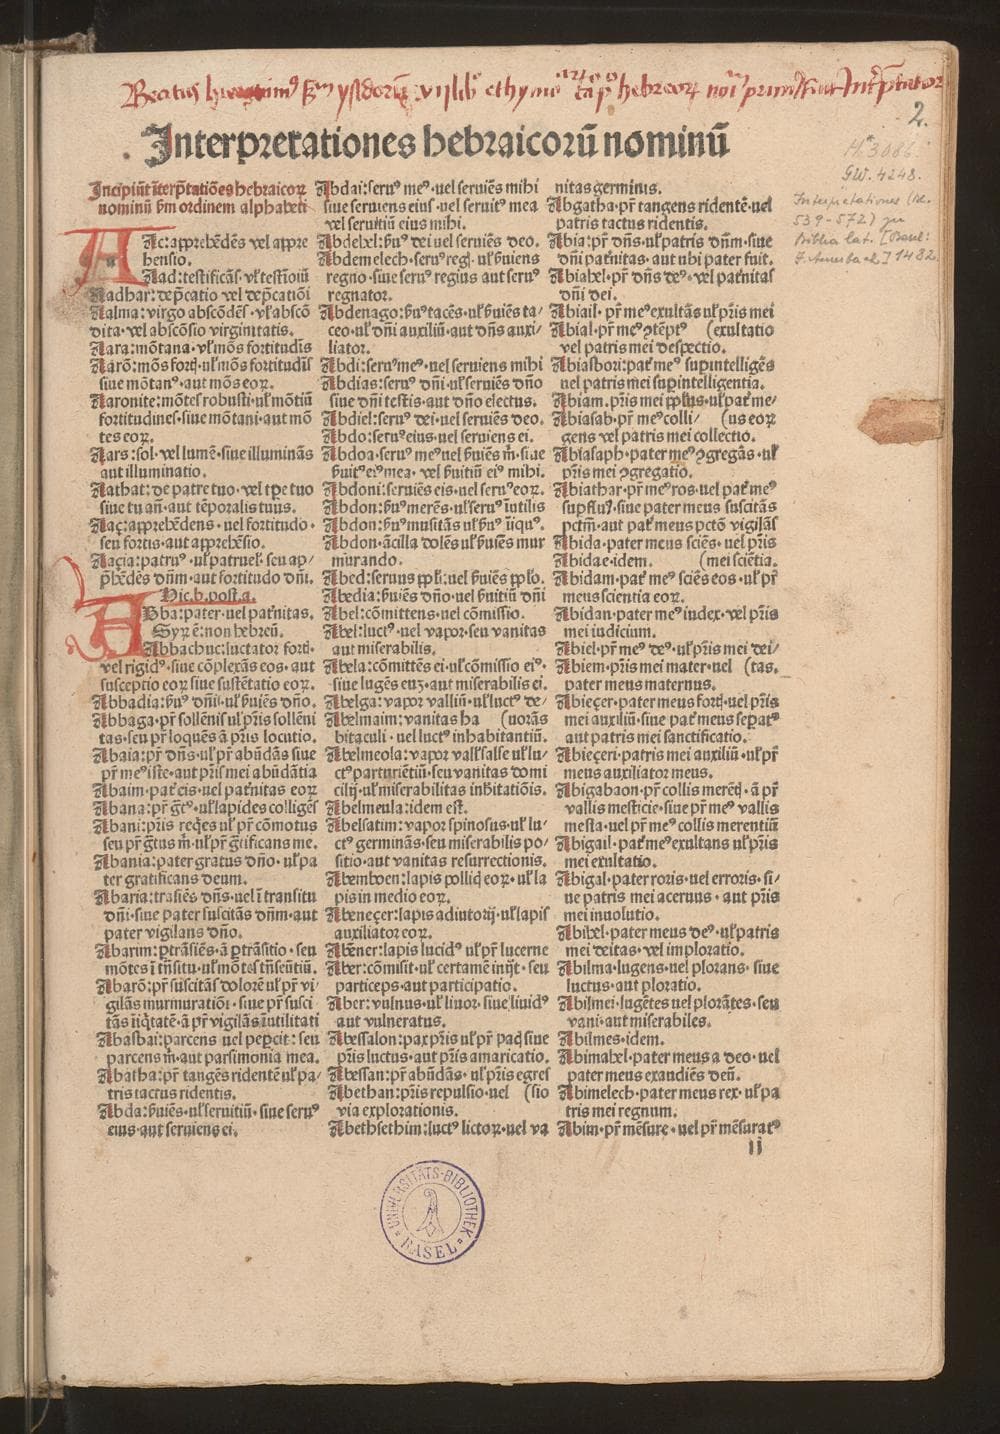 Interpretationes hebraicorū nominū
2.
H*3086.
GW. 4248.
Interpretationes (Bl.
539-572) zu
Biblia lat. [Basel:
J. Amerbach] 1482.
Incipiūt īterp̄tatiōes hebraicoꝝ
nominū ẜm ordinem alphabeti
AAc: apprehēdēs vel appre
hensio.
Aad: testificās· vł testīoiū
Aadhar: dep̄catio vel dep̄catiōi
Aalma: virgo abscōdēs· vł abscō
dita· vel abscōsio virginitatis.
Aara: mōtana· vł mōs fortitudīs
Aarō: mōs fort꜔· uł mōs fortitudīs
siue mōtanꝰ· aut mōs eoꝝ.
Aaronite: mōtes robusti· uł mōtiū
fortitudines· siue mōtani· aut mō
tes eoꝝ.
Aars: sol· vel lumē· siue illuminās
aut illuminatio.
Aathat: de patre tuo· vel tꝑe tuo
siue tu an̄· aut tēporalis tuus.
Aaç: apprehēdens· uel fortitudo·
seu fortis· aut apprehēsio.
Aaçia: patruꝰ· uł patruel꜔· seu ap/
p̄hēdēs dn̄m· aut fortitudo dn̄i.
Hic.b.post.a.
ABba: pater· uel pat̄nitas.
Syrꝰ ē: non hebreū.
Abbachuc: luctator fort꜔·
vel rigidꝰ· siue cōplexās eos· aut
susceptio eoꝝ siue sustētatio eoꝝ.
Abbadia: ẜuꝰ dn̄i· uł ẜuiēs dn̄o.
Abbaga· pr̄ sollēnis uł pr̄is sollēni
tas· seu pr̄ loquēs ā pr̄is locutio.
Abaia: pr̄ dn̄s· uł pr̄ abūdās siue
pr̄ meꝰ iste· aut pr̄is mei abūdātia
Abaim· pat̄ eis· uel pat̄nitas eoꝝ
Abana: pr̄ ḡtꝰ· uł lapides colligēs
Abani: pr̄is reqͥes uł pr̄ cōmotus
seu pr̄ ḡtus m̄· uł pr̄ ḡtificans me.
Abania: pater gratus dn̄o· uł pa
ter gratificans deum.
Abaria: trāsiēs dn̄s· uel ī transitu
dn̄i· siue pater suscitās dn̄m· aut
pater vigilans dn̄o.
Abarim: ꝑtrāsiēs· ā ꝑtrāsitio· seu
mōtes ī trāsitu· uł mōtes trāseūtiū.
Abarō: pr̄ suscitās dolorē uł pr̄ vi/
gilās murmuratiōi· siue pr̄ susci
tās īiq̄tatē· ā pr̄ vigilās īutilitati
Abasbai: parcens uel peꝑcit: seu
parcens m̄· aut parsimonia mea.
Abatha: pr̄ tangēs ridentē uł pa/
tris tactus ridentis.
Abda: ẜuiēs· uł seruitiū· siue seruꝰ
eius· aut seruiens ei.
Abdai: seruꝰ meꝰ· uel seruiēs mihi
siue seruiens eius· uel seruitꝰ mea
vel seruitiū eius mihi.
Abdehel: ẜuꝰ dei uel seruiēs deo.
Abdemelech: seruꝰ reg꜔· uł ẜuiens
regno· siue seruꝰ regius aut seruꝰ
regnator.
Abdenago: ẜuꝰ tacēs· uł ẜuiēs ta/
ceo· uł dn̄i auxiliū· aut dn̄s auxi/
liator.
Abdi: seruꝰ meꝰ· uel seruiens mihi
Abdias: seruꝰ dn̄i· uł seruiēs dn̄o
siue dn̄i testis· aut dn̄o electus.
Abdiel: seruꝰ dei· uel seruiēs deo.
Abdo: seruꝰ eius· uel seruiens ei.
Abdoa: seruꝰ meꝰ uel ẜuiēs m̄· siue
ẜuitꝰ eiꝰ mea· vel ẜuitiū eiꝰ mihi.
Abdoni: seruiēs eis· uel seruꝰ eoꝝ.
Abdon: ẜuꝰ merēs· uł seruꝰ īutilis
Abdon: ẜuꝰ musitās uł ẜuꝰ īiquꝰ.
Abdon· ācilla dolēs uł ẜuiēs mur
murando.
Abed: seruus pp̄li: uel ẜuiēs pp̄lo.
Abedia: ẜuiēs dn̄o· uel ẜuitiū dn̄i
Abel: cōmittens· uel cōmissio.
Abel: luctꝰ· uel vapor· seu vanitas
aut miserabilis.
Abela: cōmittēs ei· uł cōmissio eiꝰ·
siue lugēs eū· aut miserabilis ei.
Abelga: vapor valliū· uł luctꝰ de/
Abelmaim: vanitas ha (uorās
bitaculi· uel luctꝰ inhabitantiū.
Abelmeola: vapor vall꜔ salse uł lu/
ctꝰ parturiētiū· seu vanitas domi
cilij· uł miserabilitas inhītatiōis.
Abelmeula: idem est.
Abelsatim: vapor spinosus· uł lu/
ctꝰ germinās· seu miserabilis po/
sitio· aut vanitas resurrectionis.
Abemboen: lapis pollic꜔ eoꝝ· uł la
pis in medio eoꝝ.
Abeneçer: lapis adiutorij· uł lapis
auxiliator eoꝝ.
Abēner: lapis lucidꝰ uł pr̄ lucerne
Aber: cōmisit· uł certamē inijt· seu
particeps· aut participatio.
Aber: vulnus· uł liuor· siue liuidꝰ
aut vulneratus.
Abessalon: pax pr̄is uł pr̄ pac꜔ siue
pr̄is luctus· aut pr̄is amaricatio.
Abessan: pr̄ abūdās· uł pr̄is egres
Abethan: pr̄is repulsio· uel (sio
via explorationis.
Abethsethim: luctꝰ lictoꝝ· uel va
nitas germinis.
Abgatha· pr̄ tangens ridentē· uel
patris tactus ridentis.
Abia: pr̄ dn̄s· uł patris dn̄m· siue
dn̄i pat̄nitas· aut ubi pater fuit.
Abiahel· pr̄ dn̄s deꝰ· vel pat̄nitas
dn̄i dei.
Abiail· pr̄ meꝰ exultās uł pr̄is mei
Abial· pr̄ meꝰ ꝯtēptꝰ (exultatio
vel patris mei despectio.
Abiasbori: pat̄ meꝰ supintelligēs
uel patris mei supintelligentia.
Abiam. pr̄is mei pp̄lus· uł pat̄ me/
Abiasab· pr̄ meꝰ colli/ (us eoꝝ
gens vel patris mei collectio.
Abiasaph· pater meꝰ ꝯgregās· uł
pr̄is mei ꝯgregatio.
Abiathar· pr̄ meꝰ ros· uel pat̄ meꝰ
supfluꝰ· siue pater meus suscitās
pctm̄· aut pat̄ meus pctō vigilās
Abida· pater meus sciēs· uel pr̄is
Abidae· idem. (mei sciētia.
Abidam· pat̄ meꝰ sciēs eos· uł pr̄
meus scientia eoꝝ.
Abidan· pater meꝰ iudex· vel pr̄is
mei iudicium.
Abiel· pr̄ meꝰ deꝰ· uł pr̄is mei dei/
Abiem· pr̄is mei mater· uel (tas.
pater meus maternus.
Abieçer· pater meus fort꜔· uel pr̄is
mei auxiliū· siue pat̄ meus seꝑatꝰ
aut patris mei sanctificatio.
Abieçeri· patris mei auxiliū· uł pr̄
meus auxiliator meus.
Abigabaon· pr̄ collis merēt꜔· ā pr̄
vallis mesticie· siue pr̄ meꝰ vallis
mesta· uel pr̄ meꝰ collis merentiū
Abigail· pat̄ meꝰ exultans uł pr̄is
mei exultatio.
Abigal· pater roris· uel erroris· si/
ue patris mei aceruus· aut pr̄is
mei inuolutio.
Abihel· pater meus deꝰ· uł patris
mei deitas· vel imploratio.
Abilma· lugens· uel plorans· siue
luctus· aut ploratio.
Abilmei· lugētes uel plorātes· seu
vani· aut miserabiles.
Abilmes· idem.
Abimahel· pater meus a deo· uel
pater meus exaudiēs deū.
Abimelech· pater meus rex· uł pa
tris mei regnum.
Abim· pr̄ mēsure· uel pr̄ mēsuratꝰ
II
UNIVERSITÄTS-BIBLIOTHEK
BASEL